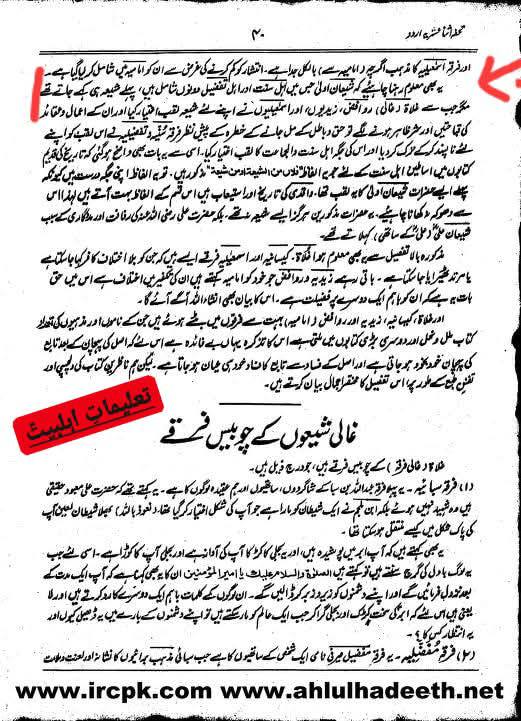 تحفہ اثنا عشریہ اردو
۴۰
اور فرقہ اسمٰعیلیہ کا مذہب اگرچہ (امامیہ سے) بالکل جدا ہے۔ انتشار کو کم کرنے کی غرض سے ان کو امامیہ میں شامل کر لیا گیا ہے۔
یہ بھی معلوم رہنا چاہیئے کہ شیعان اولیٰ جس میں اہل سنت اور اہل تفضیل دونوں شامل ہیں، پہلے شیعہ ہی کہے جاتے تھے
مگر جب سے غلاۃ (غالی) روافض، زیدیوں، اور اسمٰعیلیوں نے اپنے لئے شیعہ لقب اختیار کیا اور ان کے اعمال و عقائد
کی قباحتیں اور شر ظاہر ہونے لگے تو حق و باطل کے مل جانے کے خطرہ کے پیش نظر فرقہ سنیہ و تفضیلیہ نے اس لقب کو اپنے
لئے ناپسند کر کے ترک کر دیا اور اس کی جگہ اہل سنت والجماعت کا لقب اختیار کیا۔ اسی سے یہ بات بھی واضح ہو گئی کہ تاریخ کی قدیم
کتابوں میں اساطین اہل سنت کے لئے جو یہ الفاظ فلاں من الشیعۃ اومن شیعۃ مذکور ہیں۔ تو یہ الفاظ اپنی جگہ درست ہیں کیونکہ
پہلے ایسے حضرات شیعان اولیٰ کا یہ لقب تھا۔ واقدی کی تاریخ اور استیعاب میں اس قسم کے الفاظ بہت آتے ہیں لہٰذا اس
سے دھوکہ نہ کھانا چاہیئے۔ یہ حضرات مذکورین ہرگز ایسے شیعہ نہ تھے، بلکہ حضرت علی رضی اللہ عنہ کی رفاقت اور مددگاری کے سبب
شیعان علی (علی کے ساتھی) کہلاتے تھے۔
مذکورہ بالا تفصیل سے یہ بھی معلوم ہوا غلاۃ، کیسانیہ اور اسمٰعیلیہ فرقے ایسے ہیں کہ جن کو بلا اختلاف کافر کہا جا سکتا ہے
یا مرتد ٹھہرایا جا سکتا ہے۔ باقی رہے زیدیہ و روافض جو خود کو امامیہ کہتے ہیں ان کی تکفیر میں اختلاف ہے اس میں حق
بات یہ ہے کہ ان کو باہم ایک دوسرے پر فضیلت ہے۔ اس کا بیان بھی انشاء اللہ آگے آئے گا۔
اور غلاۃ، کیسانیہ، زیدیہ اور روافض (امامیہ) بہت سے فرقوں میں بٹے ہوئے ہیں جن کے ناموں اور مذہبوں کی تعداد
کتاب ملل و نحل اور دوسری بڑی کتابوں میں ملتی ہے۔ اس کا تذکرہ یہاں بے فائدہ ہے اس لئے کہ اصل کی پہچان کے بعد تابع
کی پہچان خود بخود ہو جاتی ہے اور اصل کے فساد سے تابع کا فساد خود ہی عیاں ہو جاتا ہے۔ لیکن ہم ناظرین کتاب کی دلچسپی اور
تفنن طبع کے طور پر اس تفصیل کا مختصر اجمال بیان کرتے ہیں۔
تعلیمات اہلبیتؑ
غالی شیعوں کے چوبیس فرقے
غلاۃ (غالی فرقہ) کے چوبیس فرقے ہیں، جو درج ذیل ہیں۔
(۱) فرقہ سبائیہ۔ یہ پہلا فرقہ عبداللہ بن سبا کے شاگردوں، ساتھیوں اور ہم عقیدہ لوگوں کا ہے۔ یہ کہتے تھے کہ حضرت علی معبود حقیقی
ہیں وہ شہید نہیں ہوئے بلکہ ابن ملجم نے ایک شیطان کو مارا ہے جو آپ کی شکل اختیار کر گیا تھا۔ (نعوذ باللہ) بھلا شیطان لعین آپ
کی پاک شکل میں کیسے متشکل ہو سکتا تھا۔
یہ بھی کہتے ہیں کہ آپ ابر میں پوشیدہ ہیں، اور یہ بجلی کا کڑکا آپ کی آواز ہے اور بجلی آپ کا کوڑا ہے۔ اسی لئے جب
یہ لوگ بادل کی گرج سنتے ہیں تو کہتے ہیں الصلوۃ والسلام علیک یا امیر المؤمنین ان کا یہ بھی کہنا ہے کہ آپ ایک مدت کے
بعد نزول فرمائیں گے اور اپنے دشمنوں کو زیر و زبر کر ڈالیں گے۔ ان لوگوں کے کلمات باہم ایک دوسرے کا رد کرتے ہیں اور
لایعنی ہیں اس لئے کہ ابر کی سخت کڑک اور بجلی گرا کر جب ایک عالم کو مار سکتے ہیں تو اپنے دشمنوں کے بارے میں یہ ڈھیل کیوں اور
یہ انتظار کس کا؟۔
(۲) فرقہ مفضلیہ۔ یہ فرقہ مفضل صیرفی نامی ایک شخص کے ساتھیوں کا ہے جب سبائی مذہب برائیوں کا نشانہ اور لعنت و ملامت
www.ircpk.com www.ahlulhadeeth.net